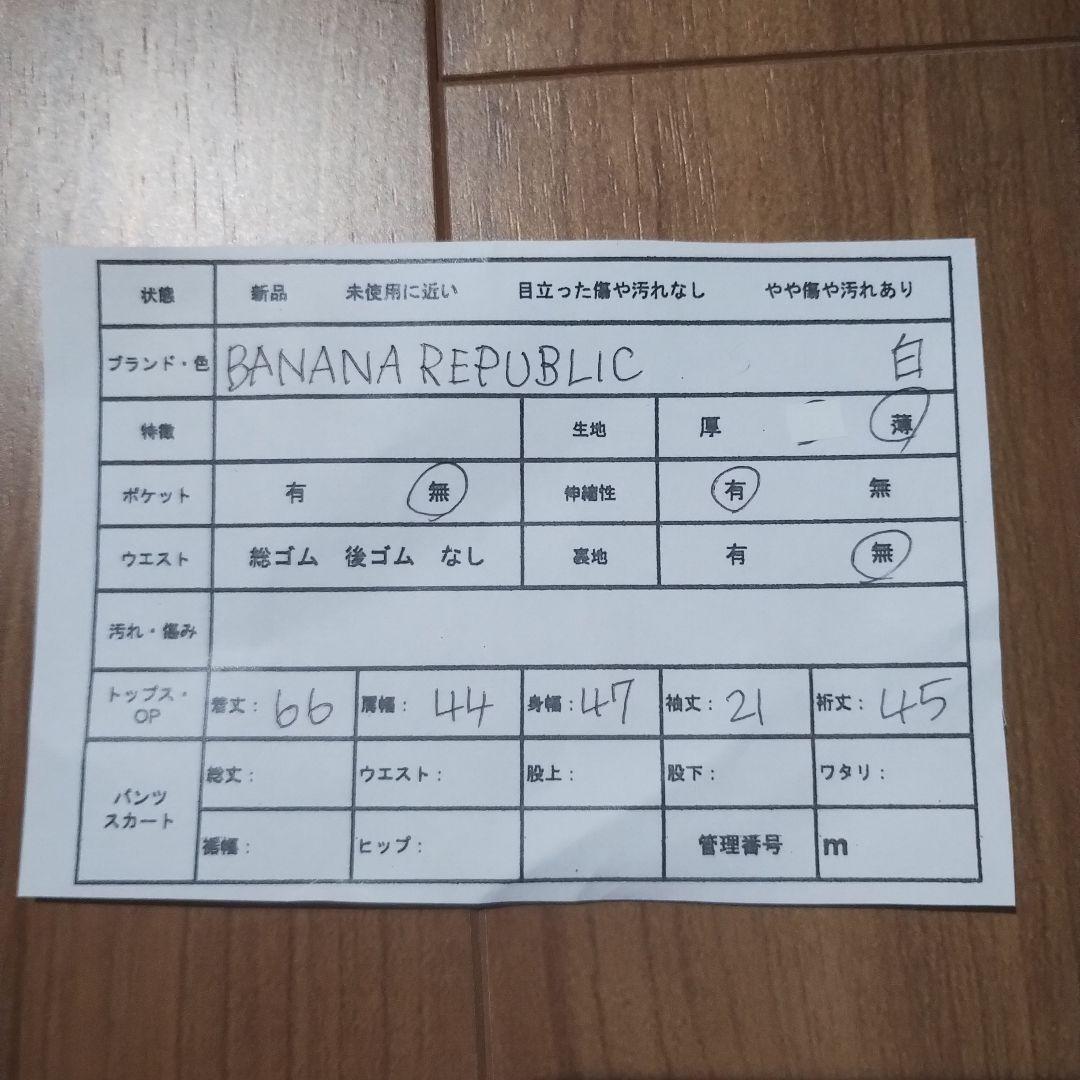 状態 新品 未使用に近い 目立った傷や汚れなし やや傷や汚れあり
ブランド・色 BANANA REPUBLIC 白
特徴 生地 厚 薄
ポケット 有 無 伸縮性 有 無
ウエスト 総ゴム 後ゴム なし 裏地 有 無
汚れ・傷み
トップス・OP 着丈: 66 肩幅: 44 身幅: 47 袖丈: 21 裄丈: 45
パンツ スカート 総丈: ウエスト: 股上: 股下: ワタリ:
裾幅: ヒップ: 管理番号 m